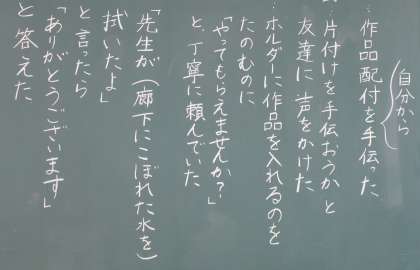 自分から
：作品配付を手伝った
片付けを手伝おうかと
友達に声をかけた
：ホルダーに作品を入れるのを
たのむのに
「やってもらえませんか？」
と、丁寧に頼んでいた
「先生が（廊下にこぼれた水を）
拭いたよ」
と言ったら
「ありがとうございます」
と答えた